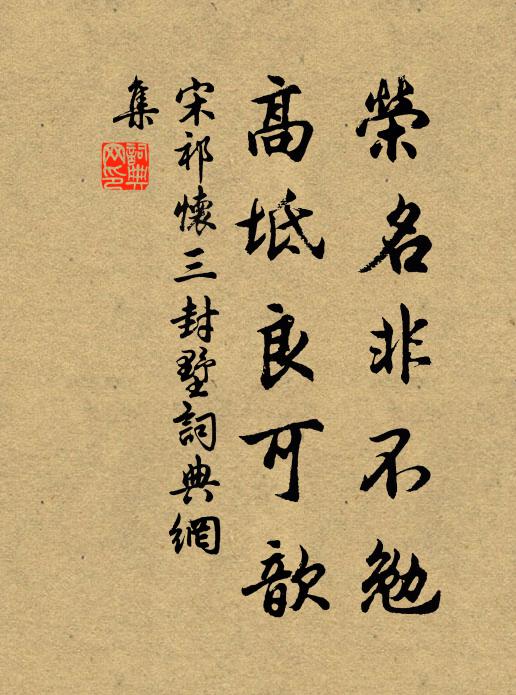 榮名非不勉
高坻良可歆
宋祁懷三封墅詞典網
集
詞典
网印